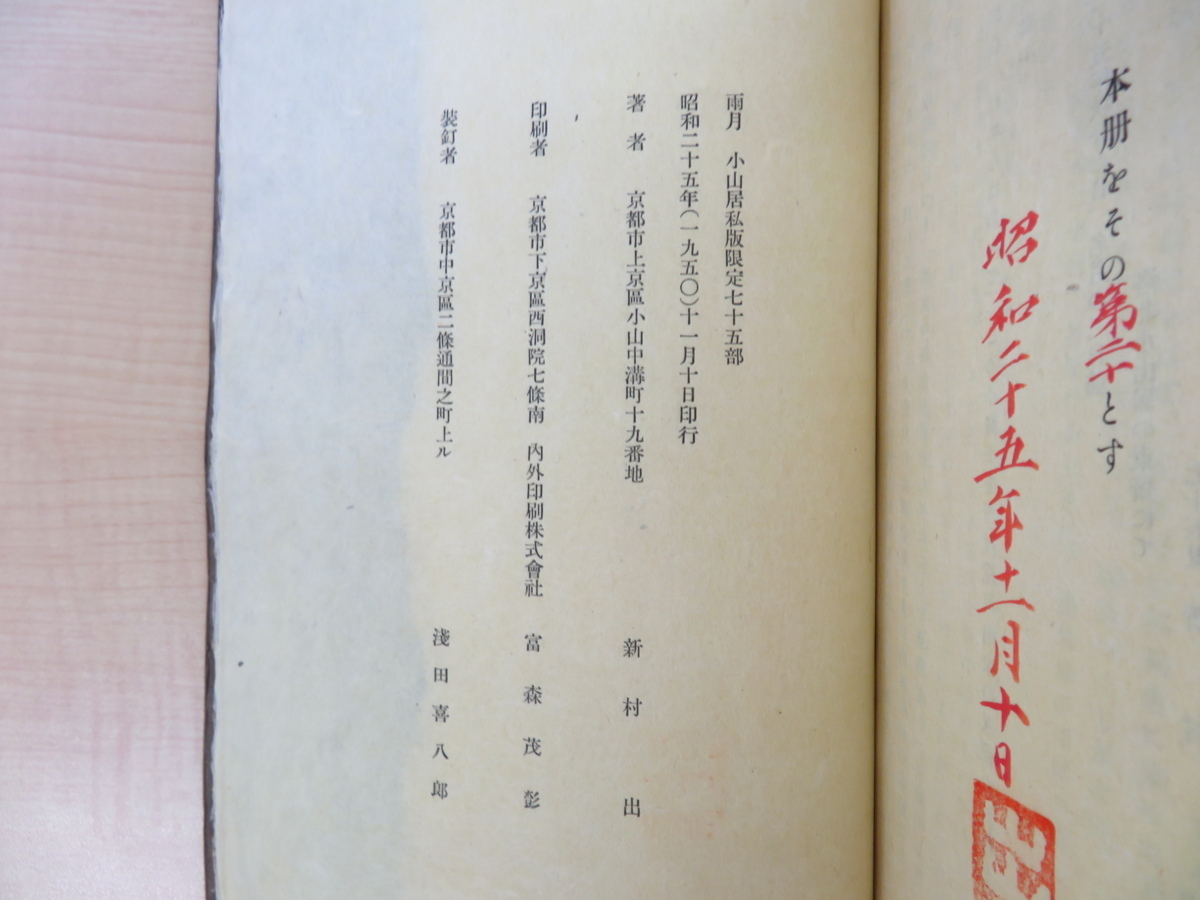 本册をその第二十とす
昭和二十五年十一月十日
雨月 小山居私版限定七十五部
昭和二十五年(一九五〇)十一月十日印行
著者 京都市上京區小山中溝町十九番地 新村出
印刷者 京都市下京區西洞院七條南 內外印刷株式會社 富森茂彭
裝釘者 京都市中京區二條通間之町上ル 淺田喜八郞